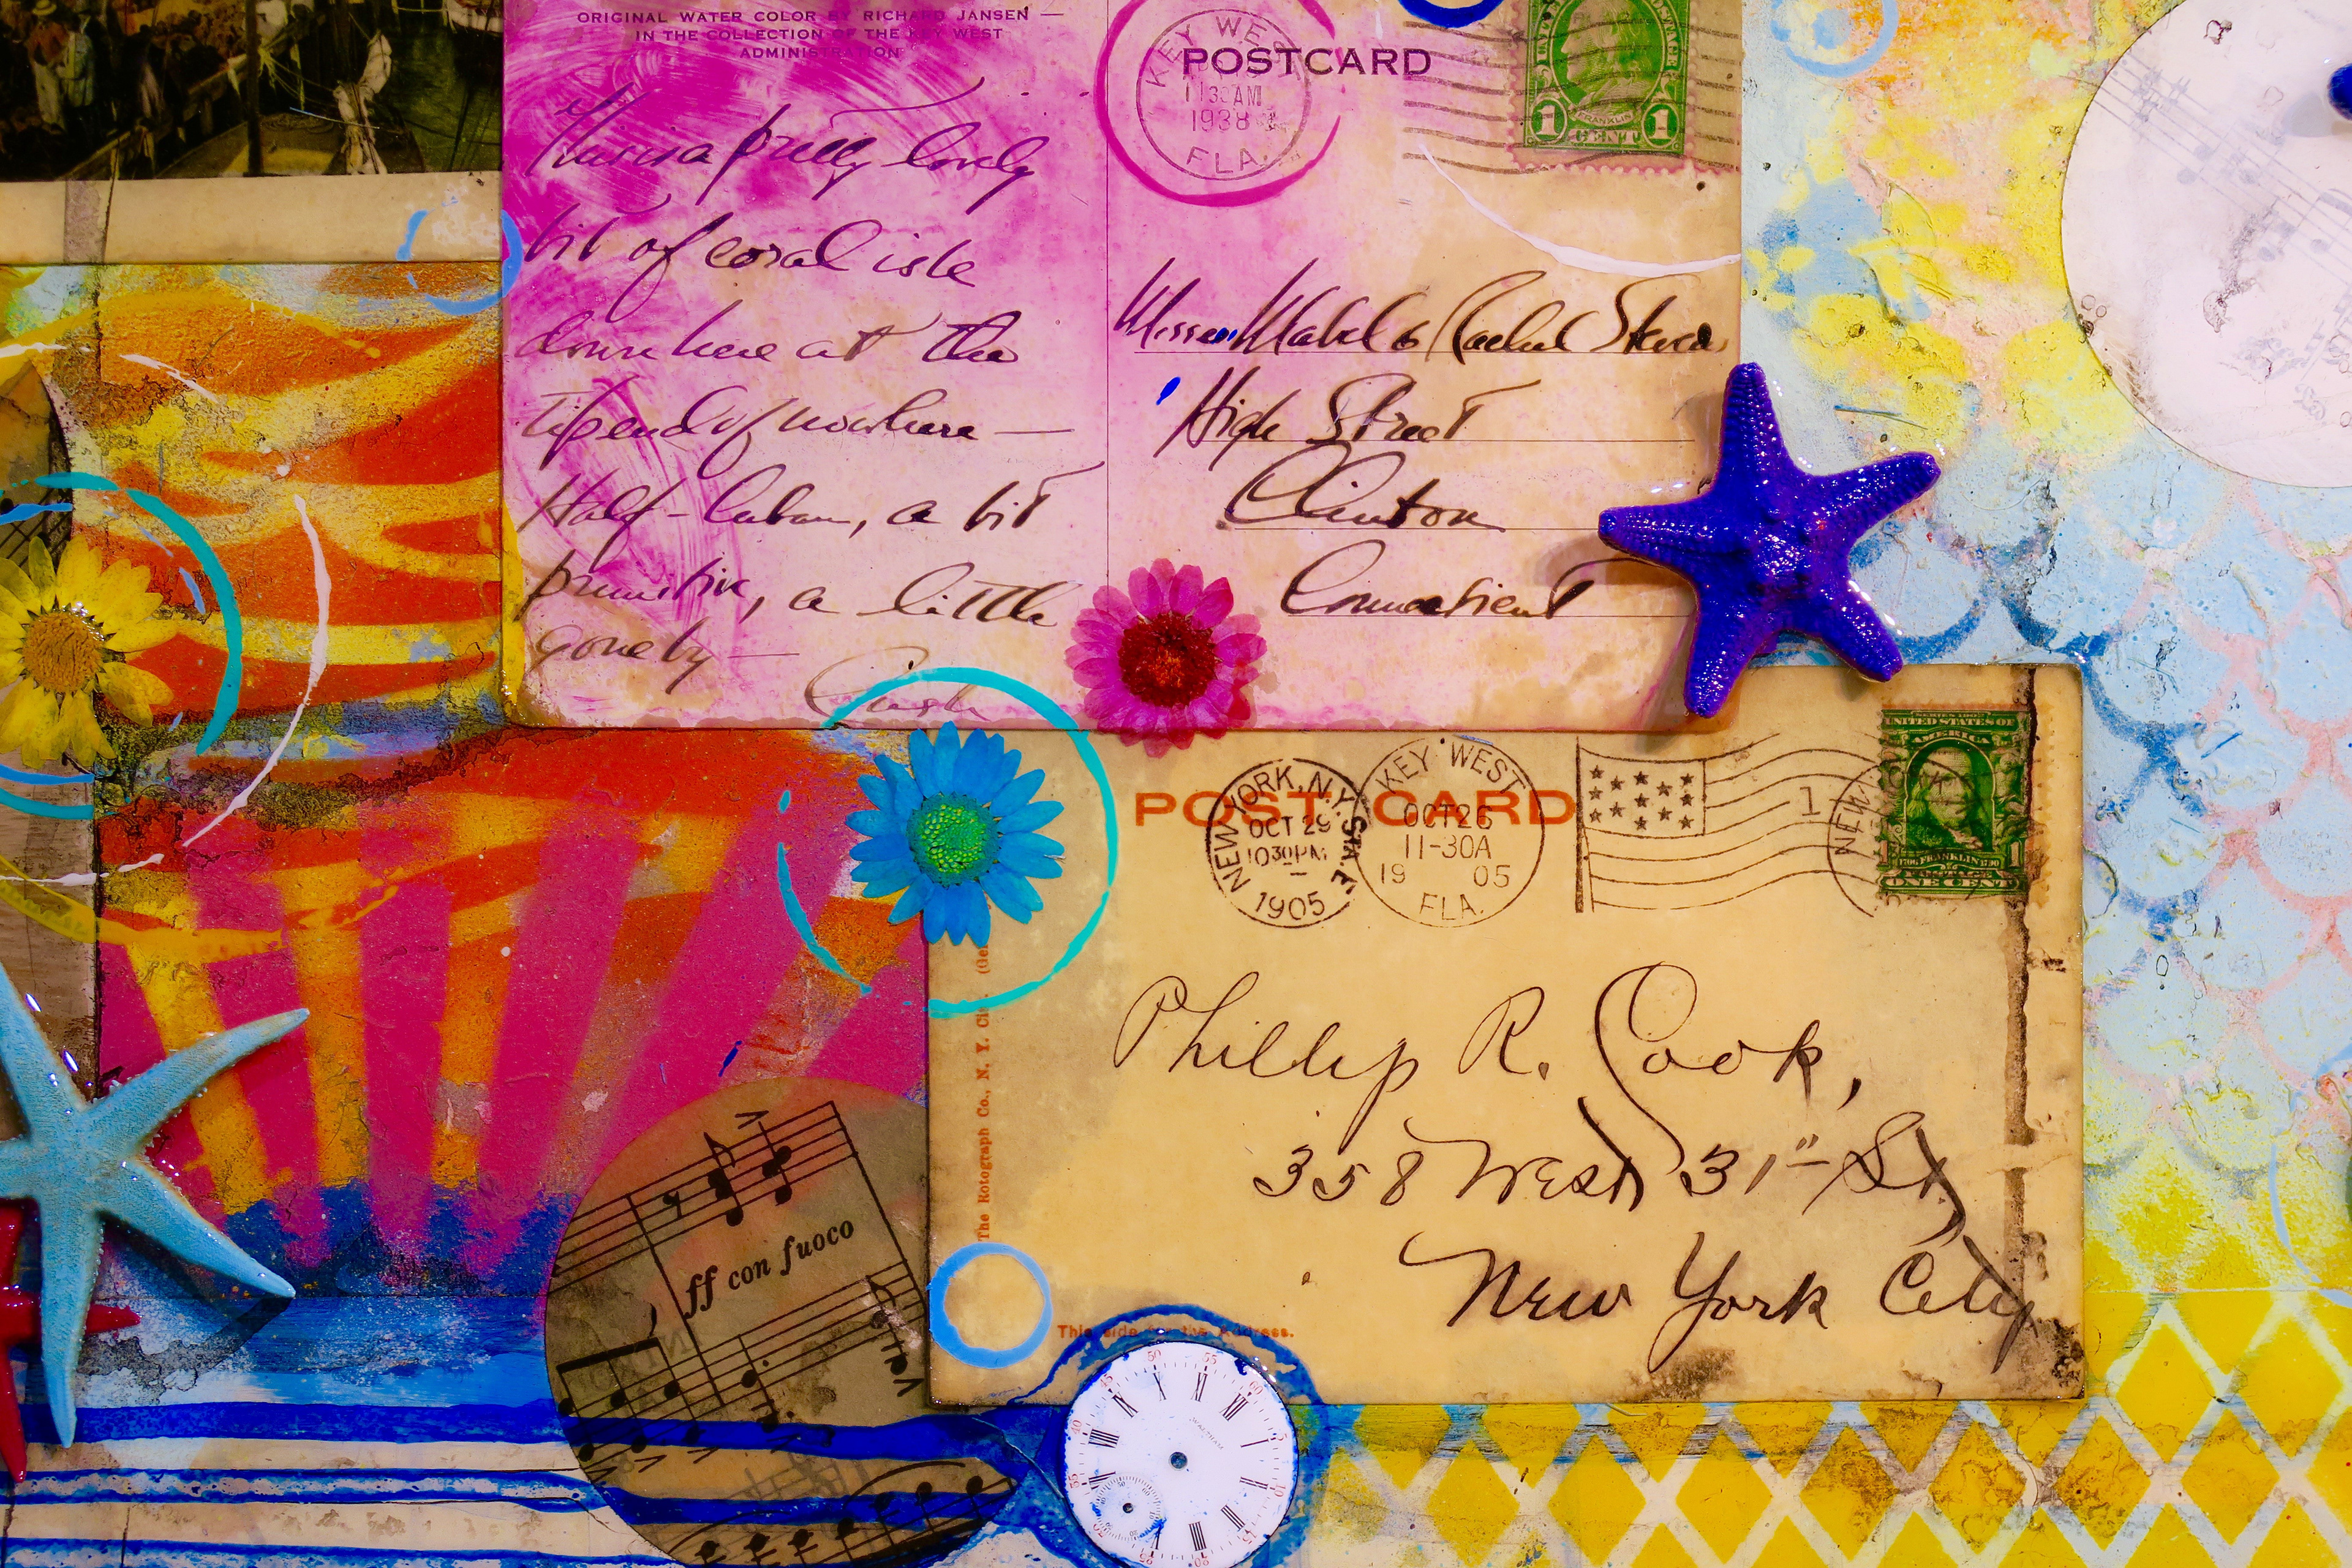 ORIGINAL WATER COLOR BY RICHARD JANSEN —
IN THE COLLECTION OF THE KEY WEST
ADMINISTRATION
This is a pretty lovely
bit of coral isle
down here at the
tip end of nowhere —
Half-Cuban, a bit
primitive, a little
gone by —
POSTCARD
KEY WEST
11 30 AM
1938
FLA.
FRANKLIN
1 CENT 1
Misses Mabel & Rachel
High Street
Clinton
Connecticut
POST CARD
NEW YORK, N.Y.
OCT 29
10 30 PM
1905
STA. E
KEY WEST
OCT 26
11-30A
19 05
FLA.
1
NEW
UNITED STATES OF
AMERICA
1706 FRANKLIN 1790
1 POSTAGE 1
ONE CENT
Phillip R. Cook,
358 West 31st St,
New York City
The Rotograph Co., N. Y. City. (Ge
This side for the Address.
ff con fuoco
WALTHAM